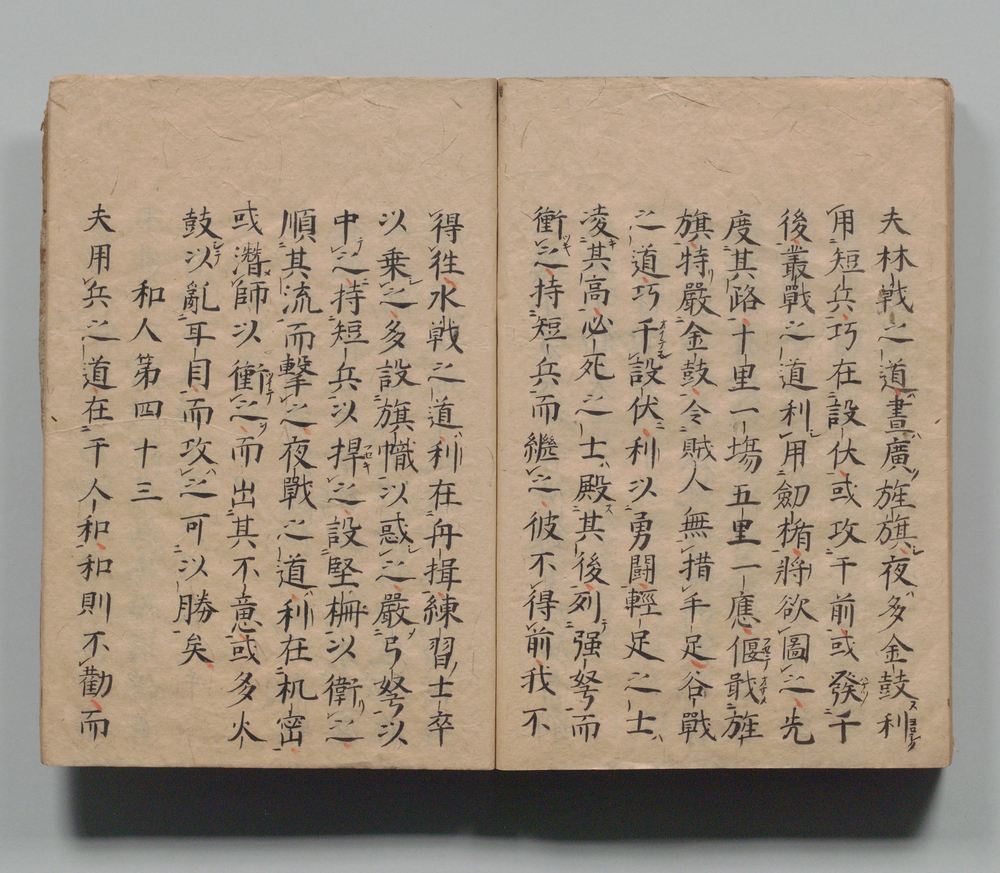 夫林戰之道晝廣旌旗夜多金鼓利
用短兵巧在設伏或攻于前或發于
後叢戰之道利用劒楯將欲圖之先
度其路十里一場五里一應偃戢旌
旗特嚴金鼓令賊人無措手足谷戰
之道巧于設伏利以勇鬪輕足之士
凌其高必死之士殿其後列强弩而
衝之持短兵而繼之彼不得前我不
得徃水戰之道利在舟揖練習士卒
以乗之多設旗幟以惑之嚴弓弩以
中之持短兵以捍之設堅柵以衛之
順其流而擊之夜戰之道利在机密
或潛師以衝之而出其不意或多火
鼓以亂耳目而攻之可以勝矣
和人第四十三
夫用兵之道在于人和和則不勸而